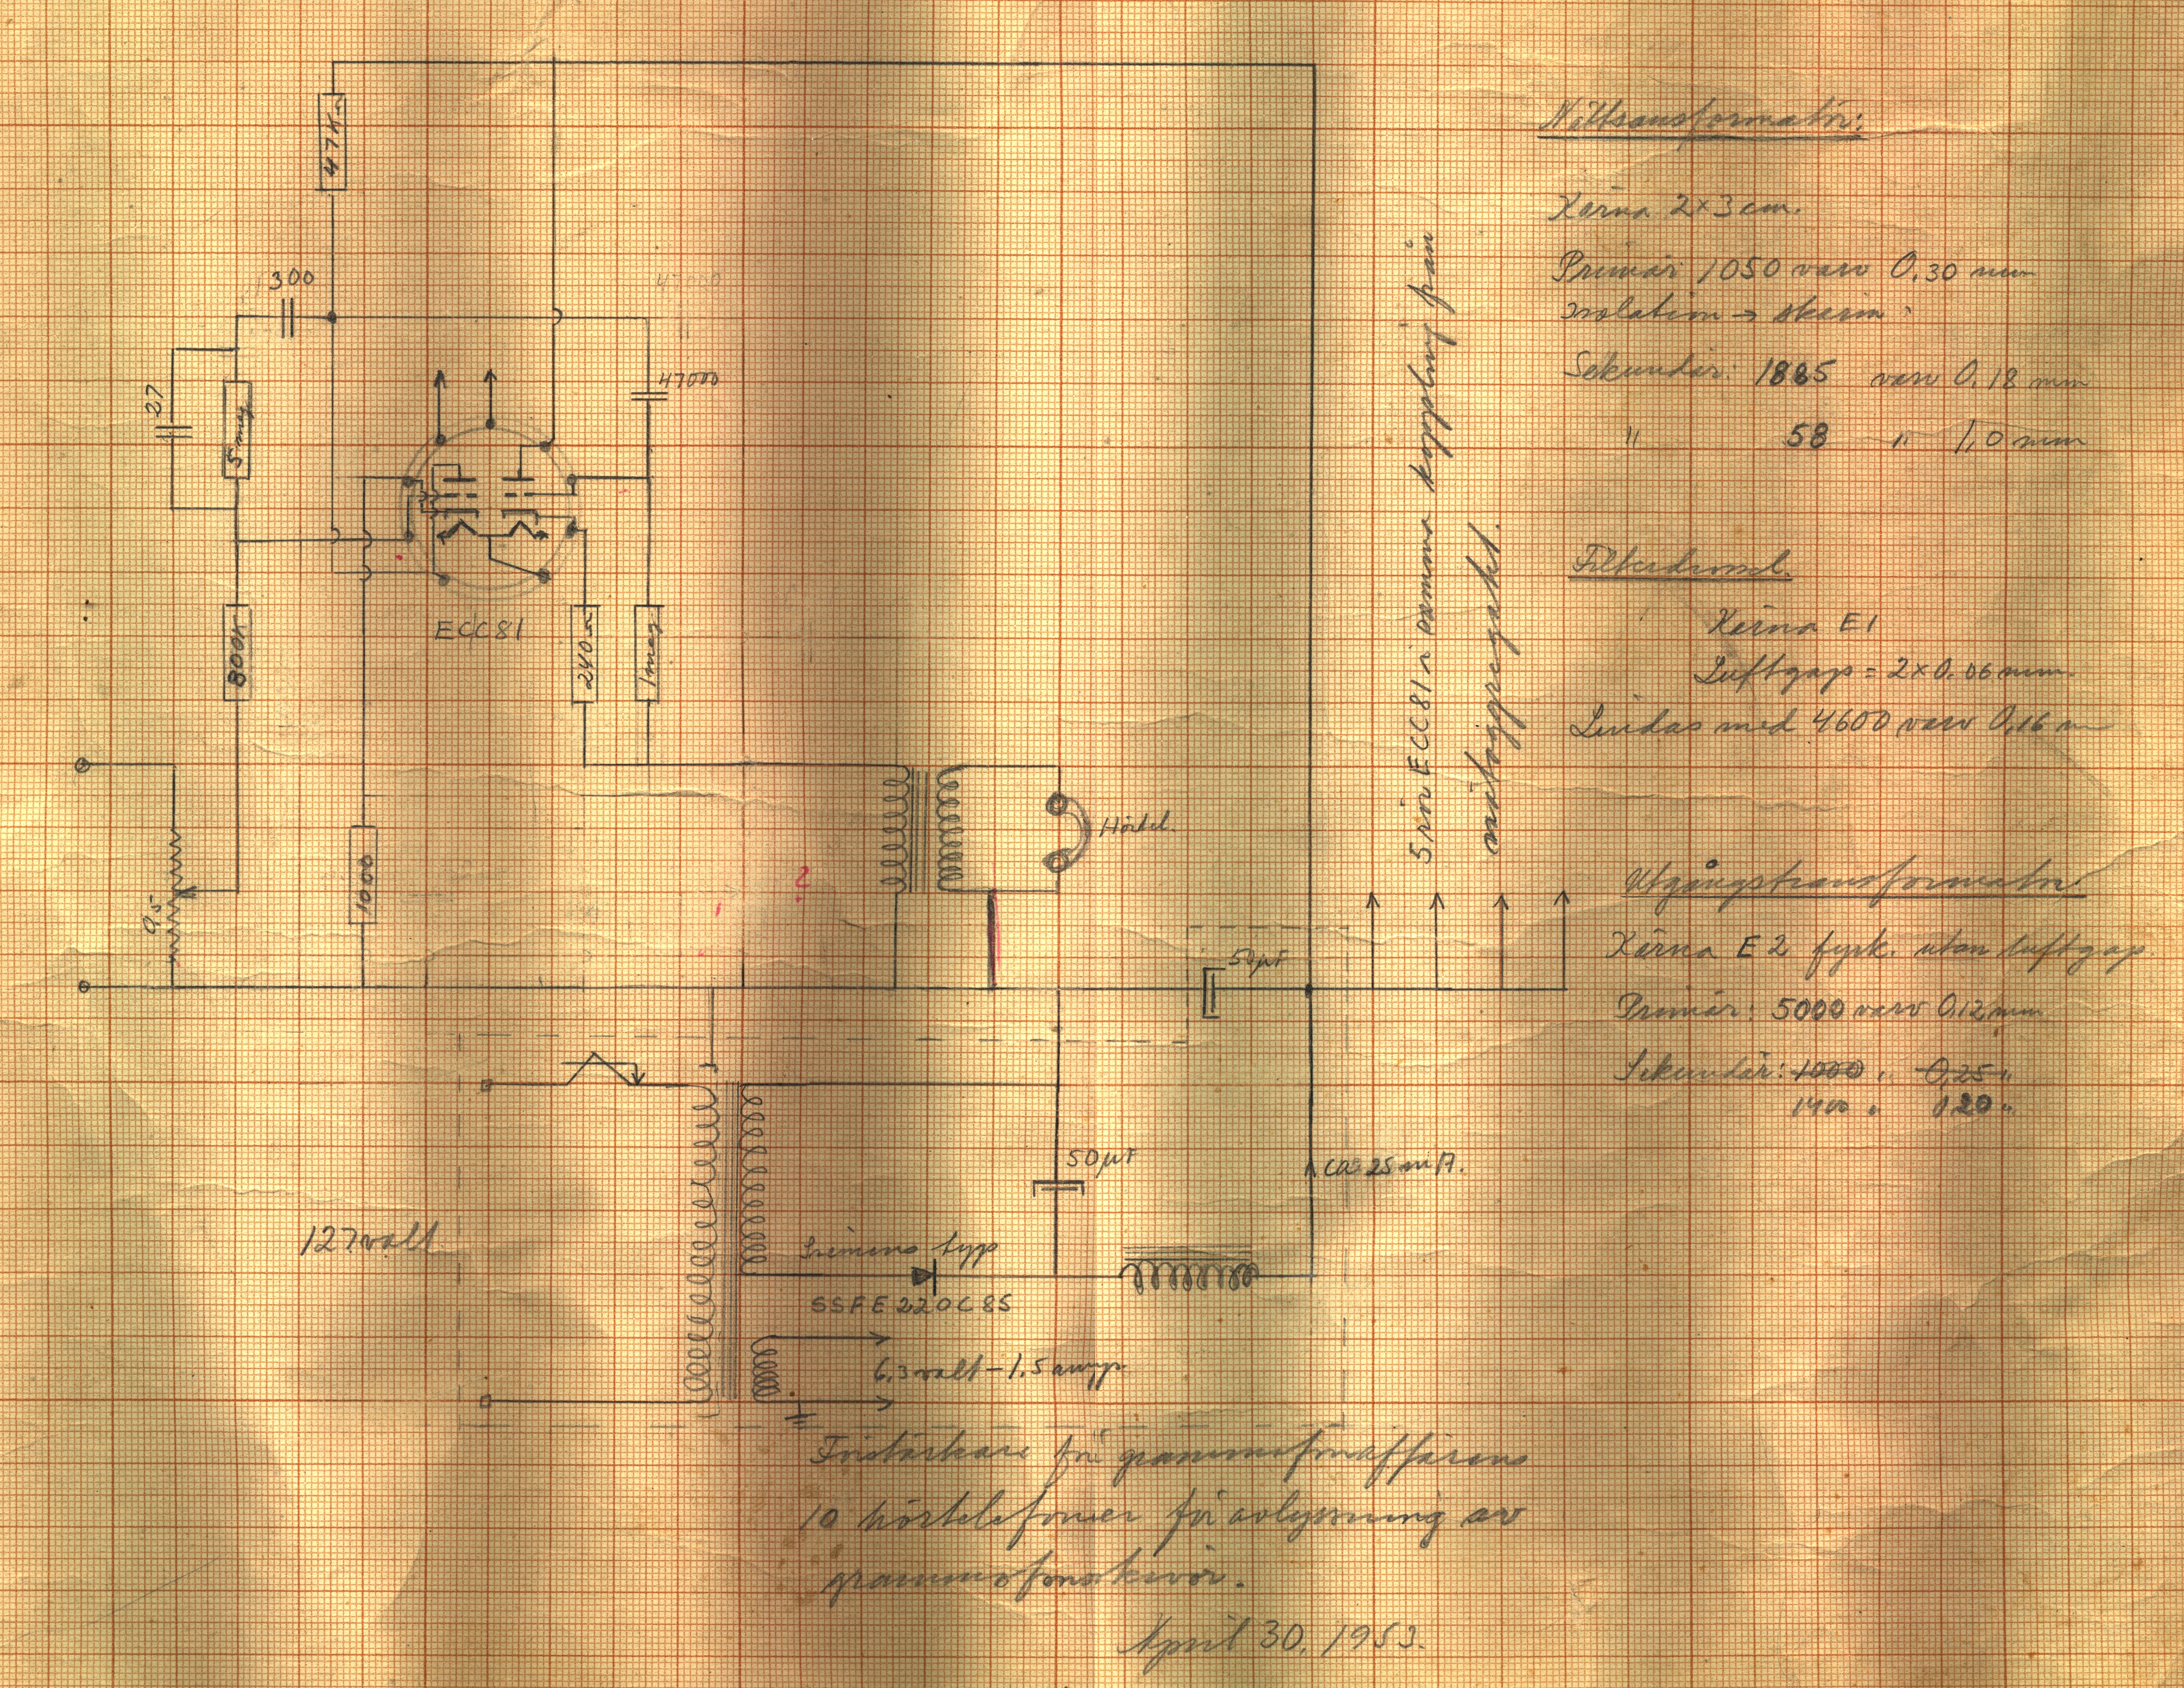 47K Ω
300
47000
47000
27
5 meg
ECC81
800K
240 Ω
1 meg
1000
0,5
Hörtel.
50µF
5 rör ECC81 i samma koppling från
nätaggregatet.
50µF
ca 25 mA.
127 volt
Siemens typ
SSFE220C85
6,3 volt – 1.5 amp.
Förstärkare för grammofonaffärens
10 hörtelefoner för avlyssning av
grammofonskivor.
April 30. 1953.
Nättransformator:
Kärna 2×3 cm.
Primär 1050 varv 0,30 mm
Isolation → skärm
Sekundär: 1885 varv 0,18 mm
" 58 " 1,0 mm
Filterdrossel.
Kärna E1
Luftgap = 2×0,06 mm.
Lindas med 4600 varv 0,16 m
Utgångstransformator
Kärna E2 fyrk. utan luftgap.
Primär: 5000 varv 0,12 mm
Sekundär: 1000 " 0,25 "
1400 " 0,20 "